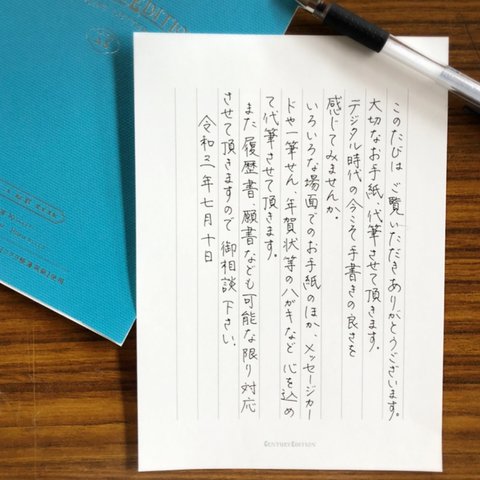 このたびは ご覧いただきありがとうございます。
大切なお手紙、代筆させて頂きます。
デジタル時代の今こそ手書きの良さを
感じてみませんか。
いろいろな場面でのお手紙のほか、メッセージカー
ドや一筆せん 年賀状等のハガキなど 心を込め
て代筆させて頂きます。
また 履歴書、願書なども可能な限り対応
させて頂きますので 御相談下さい。
令和三年七月十日
CENTURY EDITION